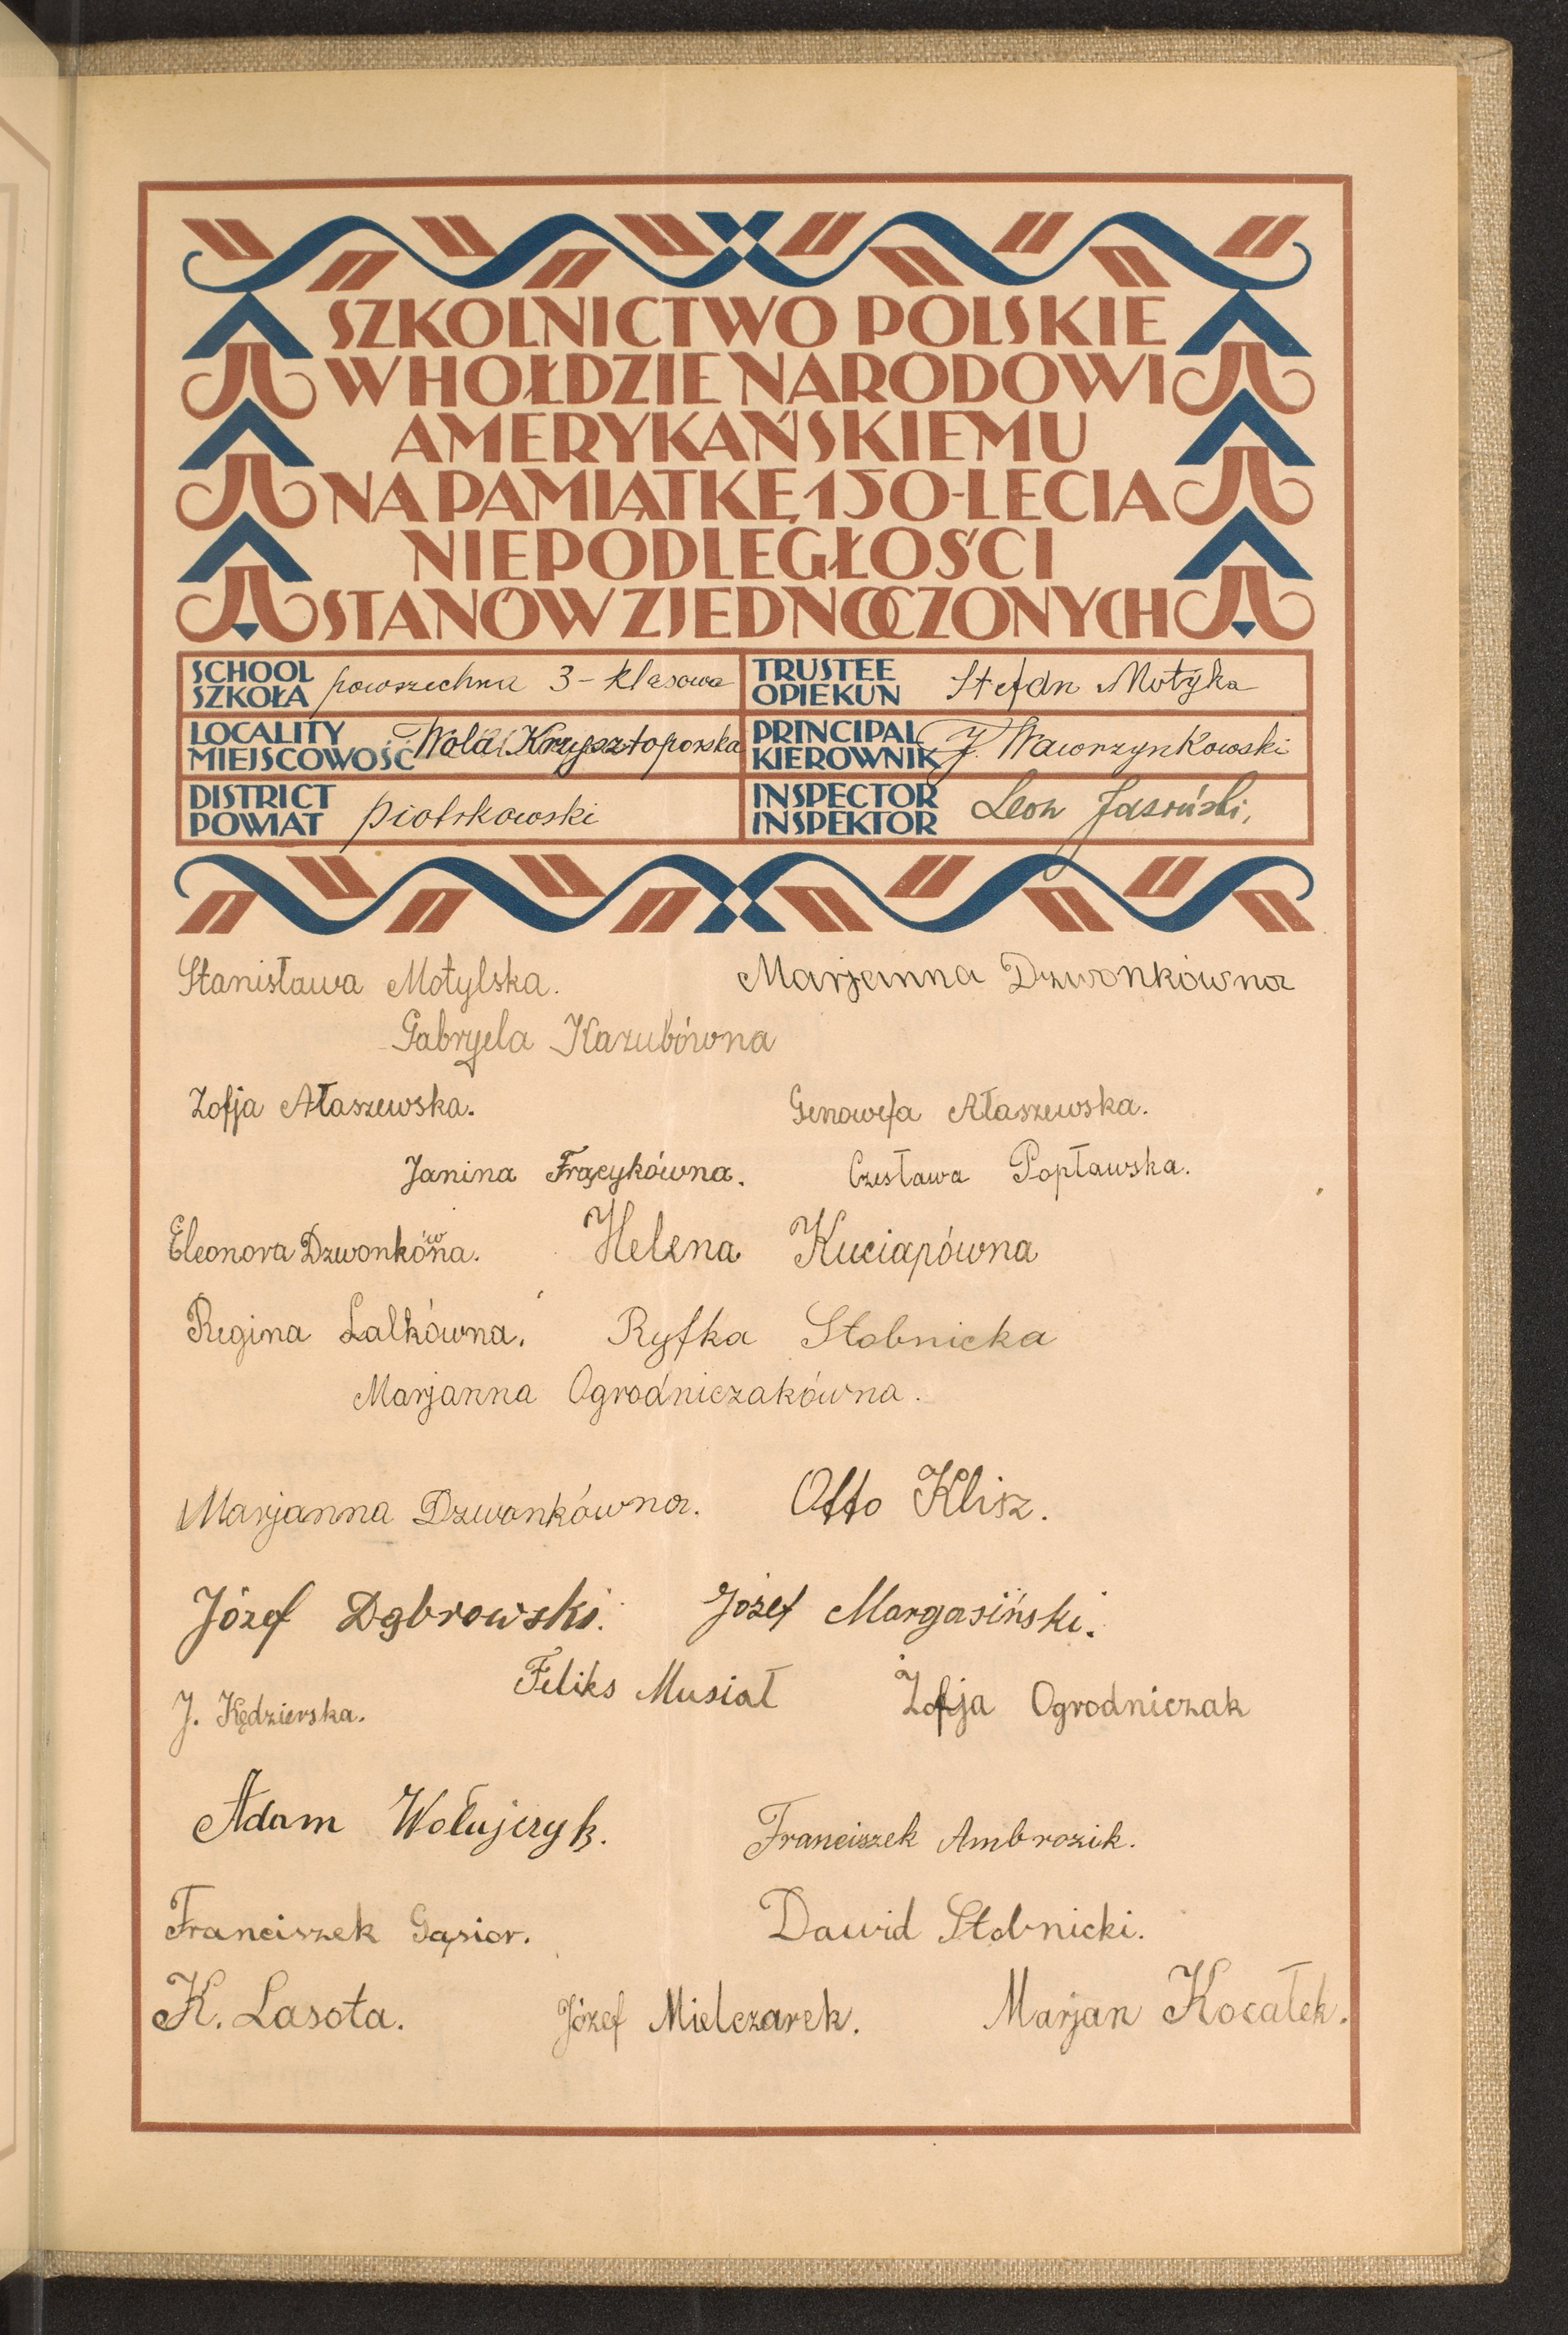 SZKOLNICTWO POLSKIE
W HOŁDZIE NARODOWI
AMERYKAŃSKIEMU
NA PAMIĄTKĘ 150-LECIA
NIEPODLEGŁOŚCI
STANÓW ZJEDNOCZONYCH
SCHOOL
SZKOŁA powszechna 3-klasowa
TRUSTEE
OPIEKUN Stefan Motyka
LOCALITY
MIEJSCOWOŚĆ Wola Krzysztoporska
PRINCIPAL
KIEROWNIK J. Wawrzynkowski
DISTRICT
POWIAT piotrkowski
INSPECTOR
INSPEKTOR Leon Jasiński,
Stanisława Motylska. Marjanna Dzwonkówna
Gabryela Kazubówna
Zofja Ałaszewska. Genowefa Ałaszewska.
Janina Frącykówna. Czesława Popławska.
Eleonora Dzwonkówna. Helena Kuciapówna
Regina Lalkówna. Ryfka Stobnicka
Marjanna Ogrodniczakówna.
Marjanna Dzwonkówna. Otto Klisz.
Józef Dąbrowski. Józef Margasiński.
J. Kędzierska. Feliks Musiał Zofja Ogrodniczak
Adam Wołujczyk. Franciszek Ambrozik.
Franciszek Gąsior. Dawid Stobnicki.
K. Lasota. Józef Mielczarek. Marjan Kocałek.